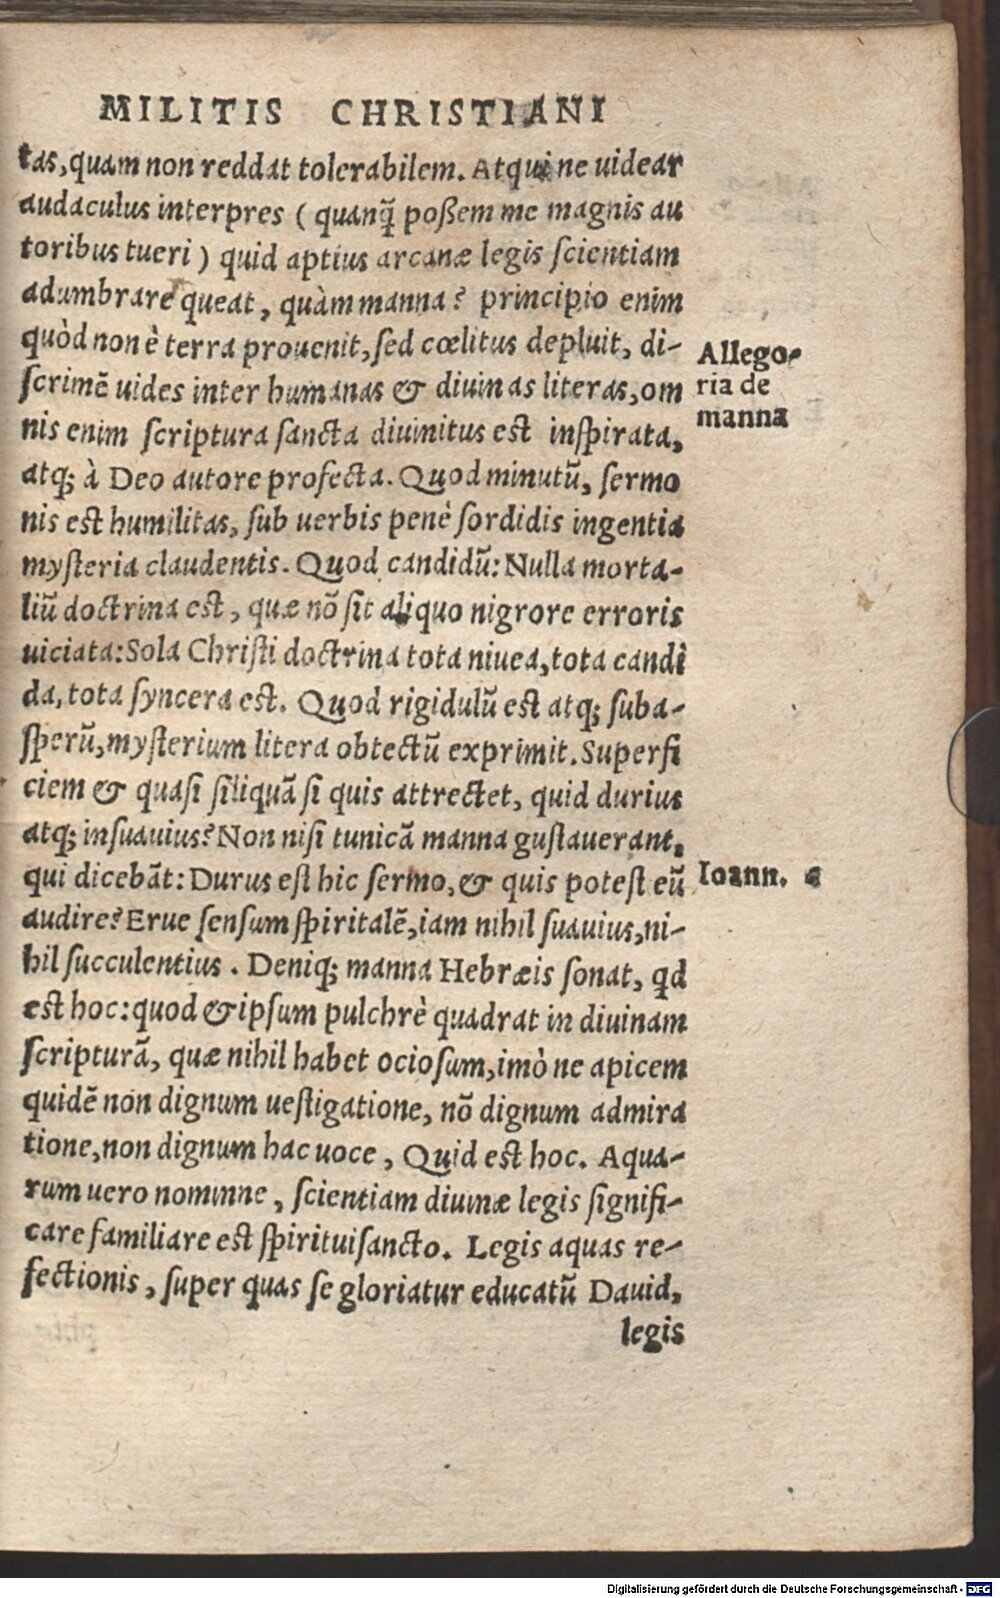 MILITIS CHRISTIANI
tas, quam non reddat tolerabilem. Atqui ne uidear
audaculus interpres ( quanq̃ poßem me magnis au
toribus tueri ) quid aptius arcanæ legis ſcientiam
adumbrare queat, quàm manna? principio enim
quòd non è terra prouenit, ſed cœlitus depluit, di-
ſcrimē uides inter humanas & diuinas literas, om
nis enim ſcriptura ſancta diuinitus est inſpirata,
atq; à Deo autore profecta. Quod minutũ, ſermo
nis est humilitas, ſub uerbis penè ſordidis ingentia
myſteria claudentis. Quod candidũ: Nulla morta-
liũ doctrina est, quæ nō ſit aliquo nigrore erroris
uiciata: Sola Chriſti doctrina tota niuea, tota candi
da, tota ſyncera est. Quod rigidulũ est atq; ſuba-
ſperũ, myſterium litera obtectũ exprimit. Superfi
ciem & quaſi ſiliquā ſi quis attrectet, quid durius
atq; inſuauius? Non niſi tunicā manna guſtauerant,
qui dicebāt: Durus eſt hic ſermo, & quis poteſt eũ
audire? Erue ſenſum ſpiritalē, iam nihil ſuauius, ni-
hil ſucculentius. Deniq; manna Hebræis ſonat, qd
est hoc: quod & ipſum pulchrè quadrat in diuinam
ſcripturā, quæ nihil habet ocioſum, imò ne apicem
quidē non dignum ueſtigatione, nō dignum admira
tione, non dignum hac uoce, Quid est hoc. Aqua-
rum uero nominne, ſcientiam diuinæ legis ſignifi-
care familiare est ſpirituiſancto. Legis aquas re-
fectionis, ſuper quas ſe gloriatur educatũ Dauid,
legis
Allego-
ria de
manna
Ioann.
Digitalisierung gefördert durch die Deutsche Forschungsgemeinschaft - DFG